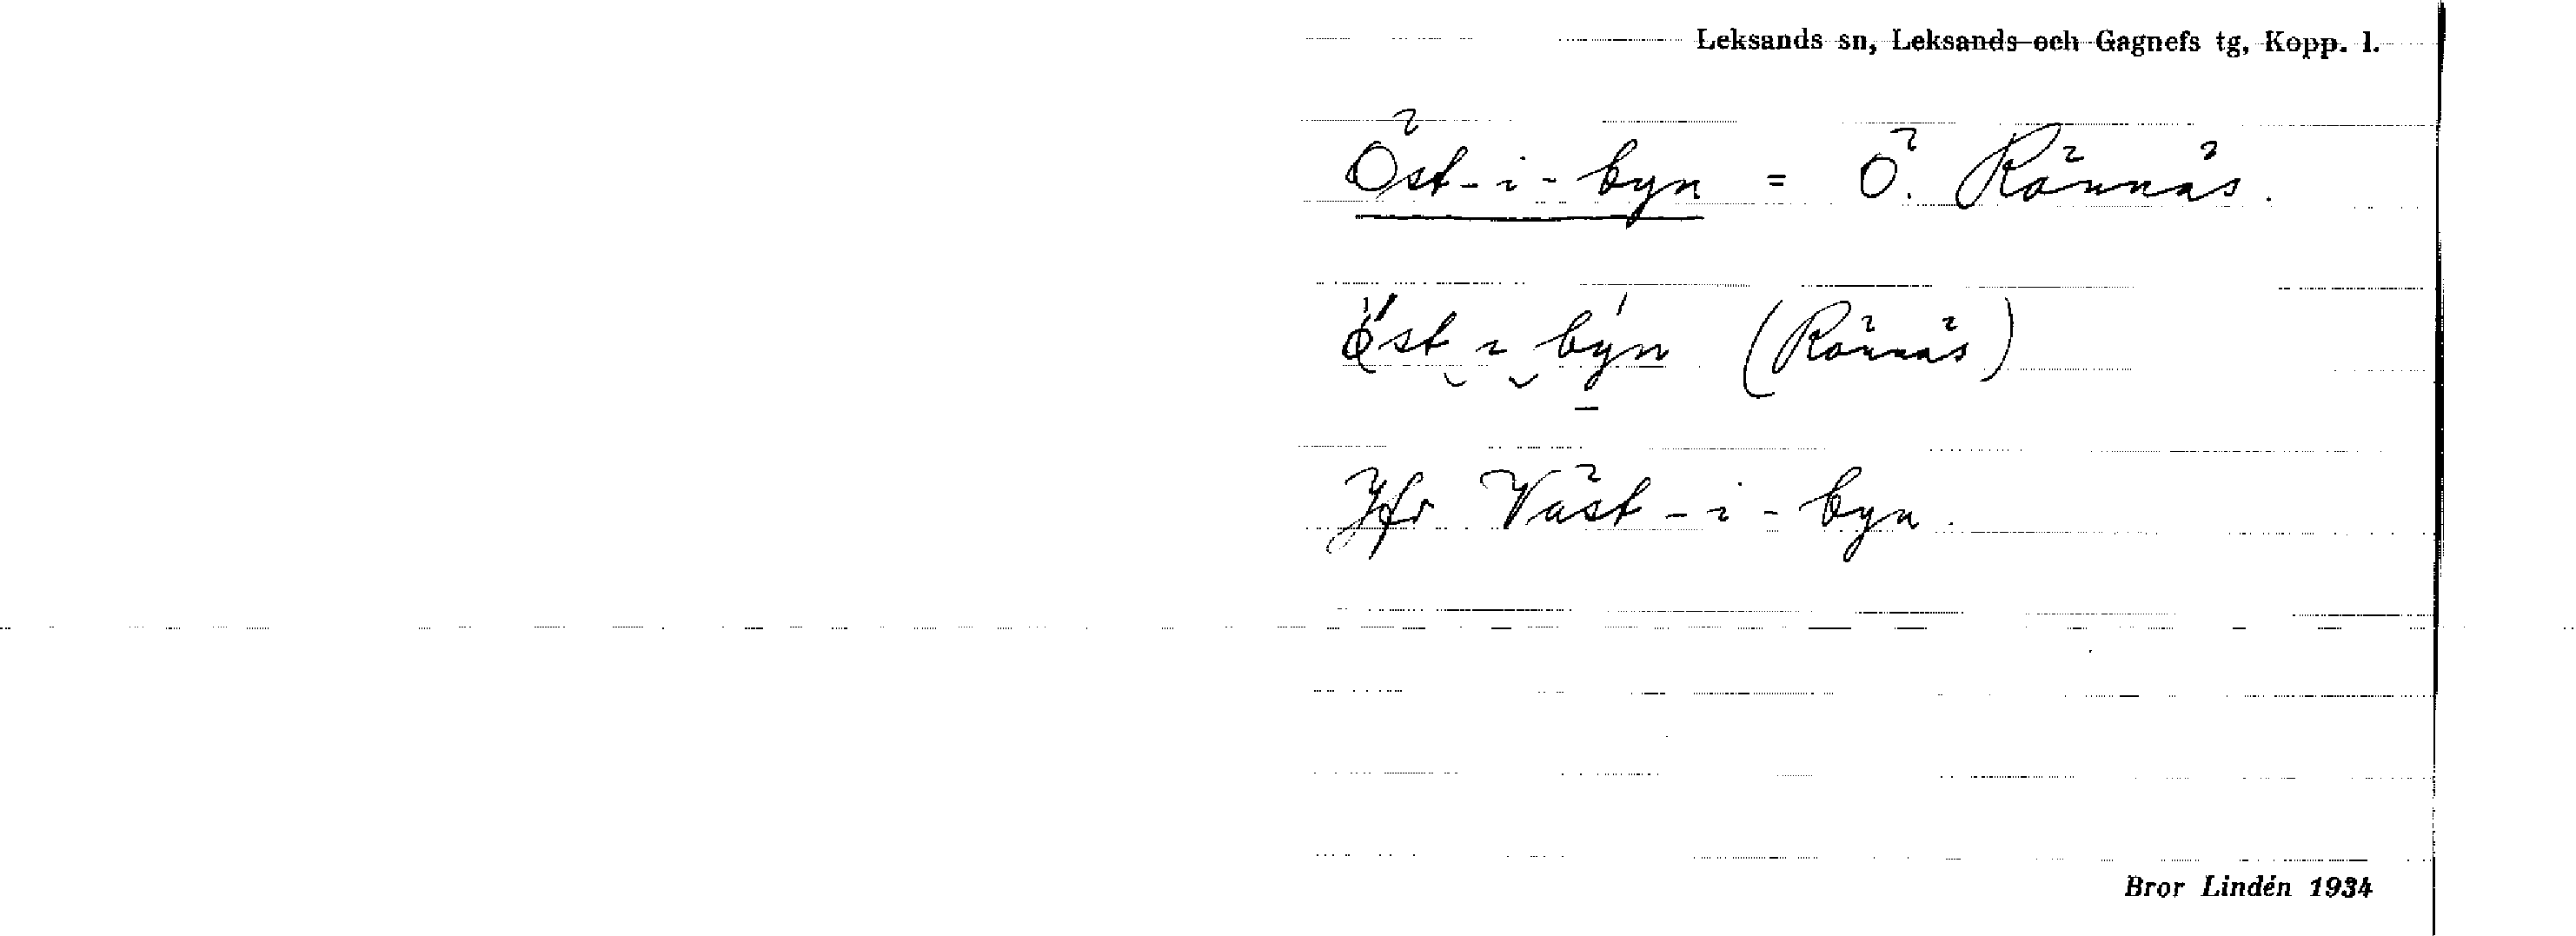 Leksands sn, Leksands och Gagnefs tg, Kopp. l.
Öst-i-byn = Ö. Rännäs.
öst i byn (Rännäs)
Jfr Väst-i-byn.
Bror Lindén 1934